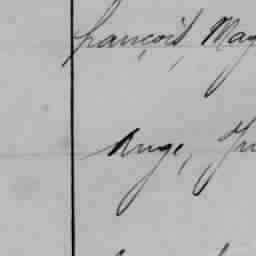 françois, Mag
Ange, Ju